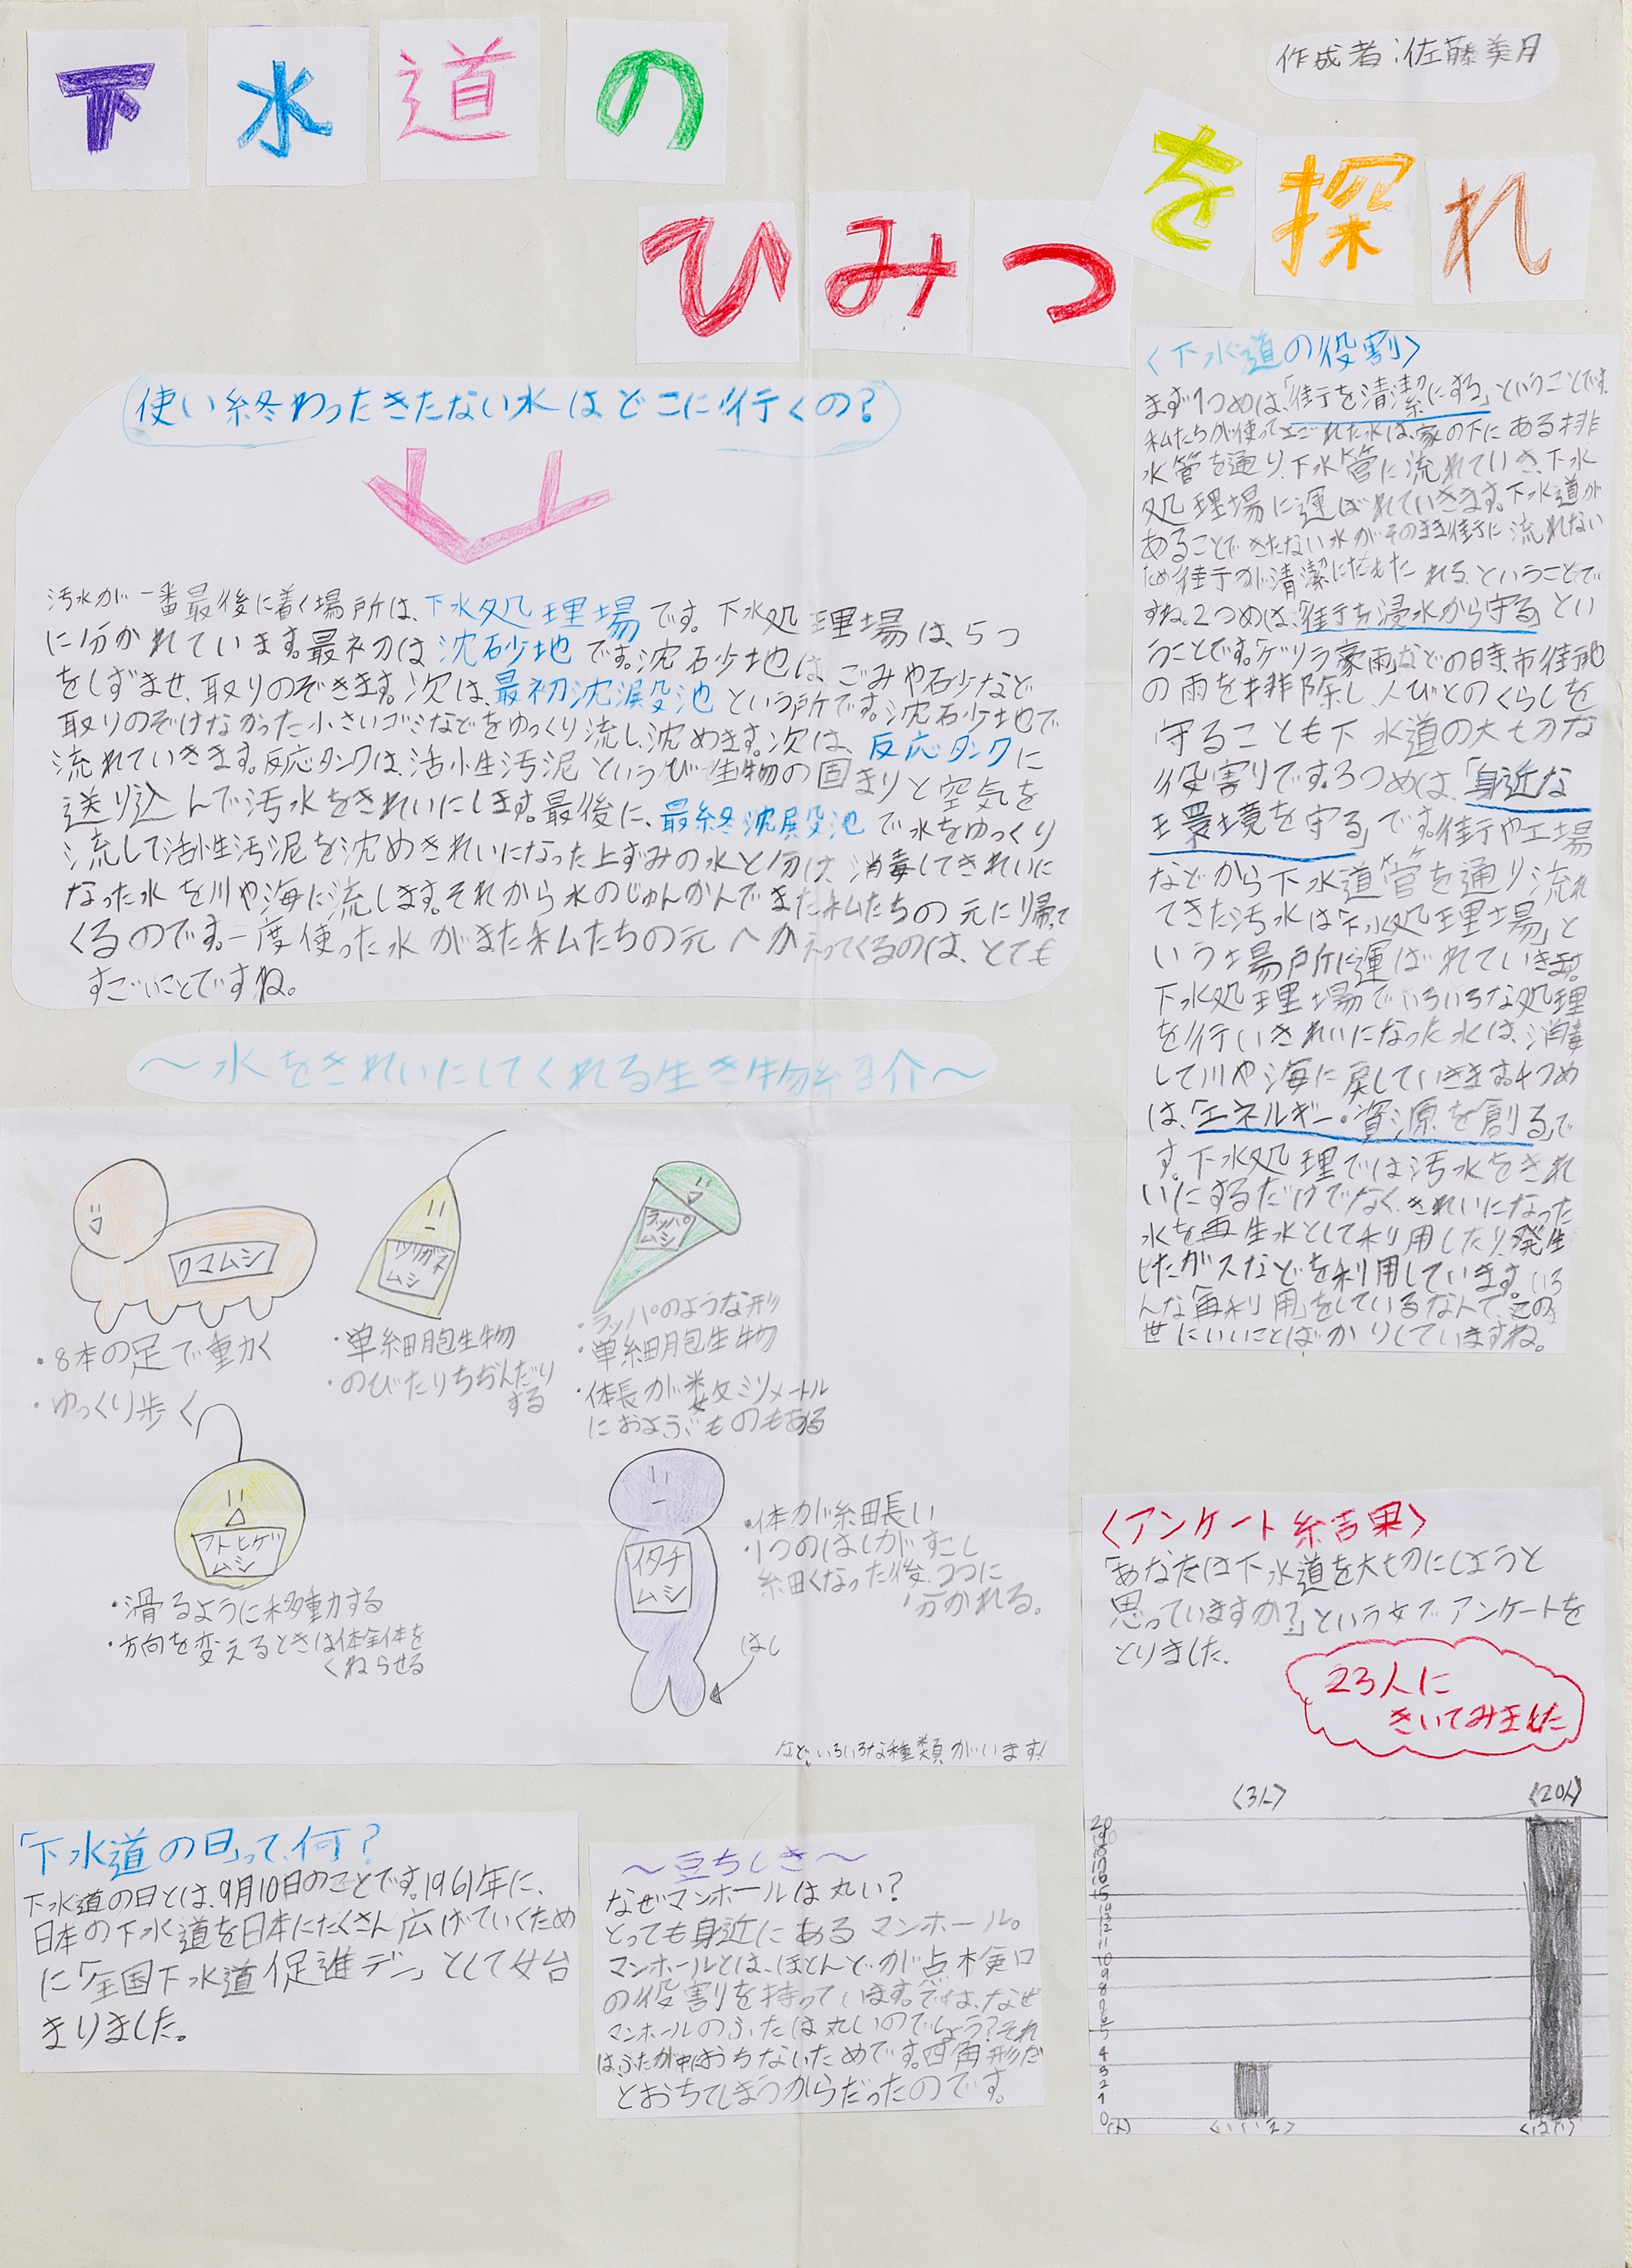 下水道の
ひみつ
を探れ
作成者:佐藤美月
使い終わったきたない水はどこに行くの?
汚水が一番最後に着く場所は、下水処理場です。下水処理場は、5つ
に分かれています。最初は沈砂地です。沈砂地は、ごみや砂など
をしずませ、取りのぞきます。次は、最初沈澱池という所です。沈砂地で
取りのぞけなかった小さいゴミなどをゆっくり流し、沈めます。次は、反応タンクに
流れていきます。反応タンクは、活小生汚泥というび生物の固まりと空気を
送り込んで汚水をきれいにします。最後に、最終沈殿池で水をゆっくり
流して活性汚泥を沈めきれいになった上ずみの水と分け、消毒してきれいに
なった水を川や海に流します。それから水のじゅんかんでまた私たちの元に帰って
くるのです。一度使った水がまた私たちの元へかえってくるのは、とても
すごいことですね。
〈下水道の役割〉
まず1つめは、「街を清潔にする」ということです。
私たちが使ってよごれた水は、家の下にある排
水管を通り、下水管に流れていき、下水
処理場に運ばれていきます。下水道が
あることできたない水がそのまま街に流れない
ため街が清潔にたもたれる、ということで
すね。2つめは、「街を浸水から守る」とい
うことです。「ゲリラ豪雨」などの時、市街地
の雨を排除し、人びとのくらしを
守ることも下水道の大切な
役割りです。3つめは、「身近な
環境を守る」です。街や工場
などから下水道管を通り流れ
てきた汚水は「下水処理場」と
いう場所に運ばれていきます。
下水処理場でいろいろな処理
を行いきれいになった水は、消毒
して川や海に戻していきます。4つめ
は、「エネルギー・資源を創る」で
す。下水処理では汚水をきれ
いにするだけでなく、きれいになった
水を再生水として利用したり、発生
したガスなどを利用しています。いろ
んな「再利用」をしているなんて、この
世にいいことばかりしていますね。
～水をきれいにしてくれる生き物紹介～
クマムシ
・8本の足で動く
・ゆっくり歩く
ツリガネ
ムシ
・単細胞生物
・のびたりちぢんだり
する
ラッパ
ムシ
・ラッパのような形
・単細胞生物
・体長が数ミリメートル
におよぶものもある
フトヒゲ
ムシ
・滑るように移動する
・方向を変えるときは体全体を
くねらせる
イタチ
ムシ
・体が細長い
・1つのはしがすこし
細くなった後、2つに
分かれる。
はし
など、いろいろな種類がいます!
〈アンケート結果〉
「あなたは下水道を大切にしようと
思っていますか?」という文でアンケートを
とりました。
23人に
きいてみました
〈3人〉
〈20人〉
0(人)
〈いいえ〉
〈はい〉
「下水道の日」って、何?
下水道の日とは、9月10日のことです。1961年に、
日本の下水道を日本にたくさん広げていくため
に「全国下水道促進デー」として始
まりました。
～豆ちしき～
なぜマンホールは丸い?
とっても身近にあるマンホール。
マンホールとは、ほとんどが点検口
の役割を持っています。では、なぜ
マンホールのふたは丸いのでしょう?それ
は、ふたが中におちないためです。四角形だ
とおちてしまうからだったのです。